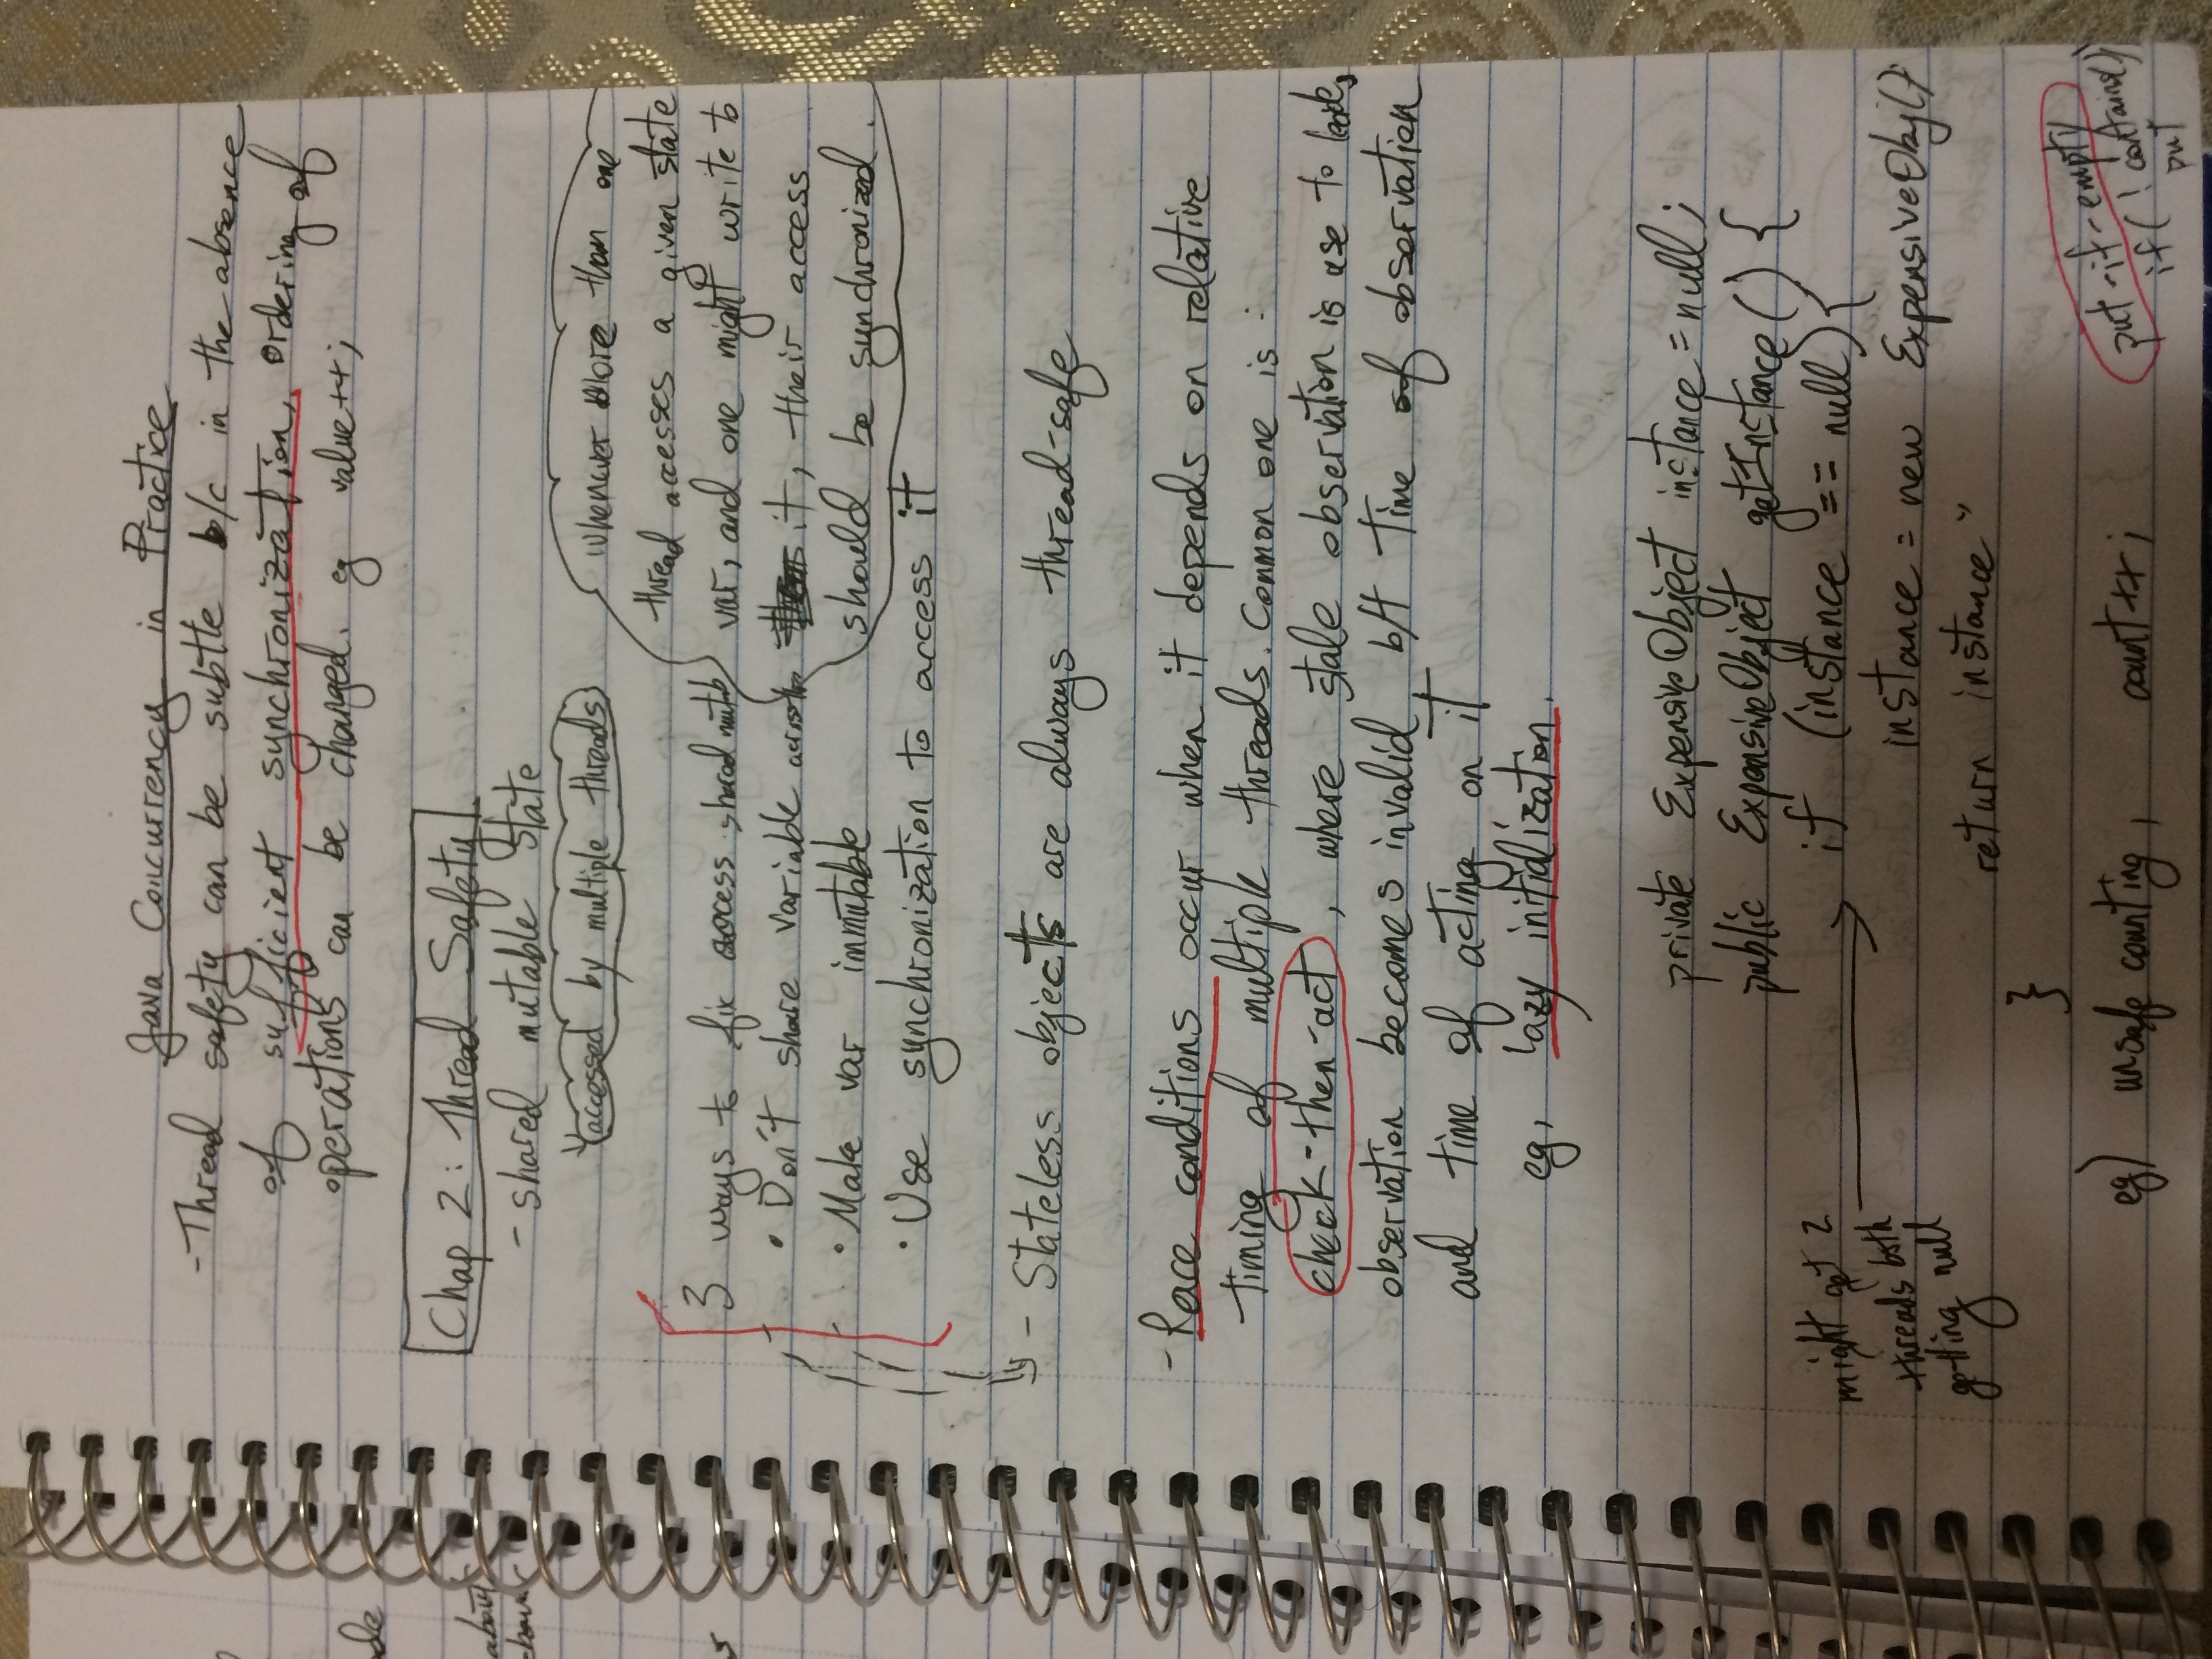 Java Concurrency in Practice
- Thread safety can be subtle b/c in the absence
of sufficient synchronization, ordering of
operations can be changed. eg value++;
Chap 2: Thread Safety
- shared mutable state
accessed by multiple threads
whenever more than one
thread accesses a given state
var, and one might write to
it, their access
should be synchronized.
3 ways to fix access shared mutb
• Don't share variable across
• Make var immutable
• Use synchronization to access it
- Stateless objects are always thread-safe
- Race conditions occur when it depends on relative
timing of multiple threads. Common one is :
check-then-act, where stale observation is use to
observation becomes invalid b/t time of observation
and time of acting on it
eg, lazy initialization.
private ExpensiveObject instance = null;
public ExpensiveObject getInstance() {
if (instance == null) {
instance = new ExpensiveObj();
return instance
}
might get 2
threads both
getting null
eg) unsafe counting, count++;
put-if-empty
if( ! contains()
put
about